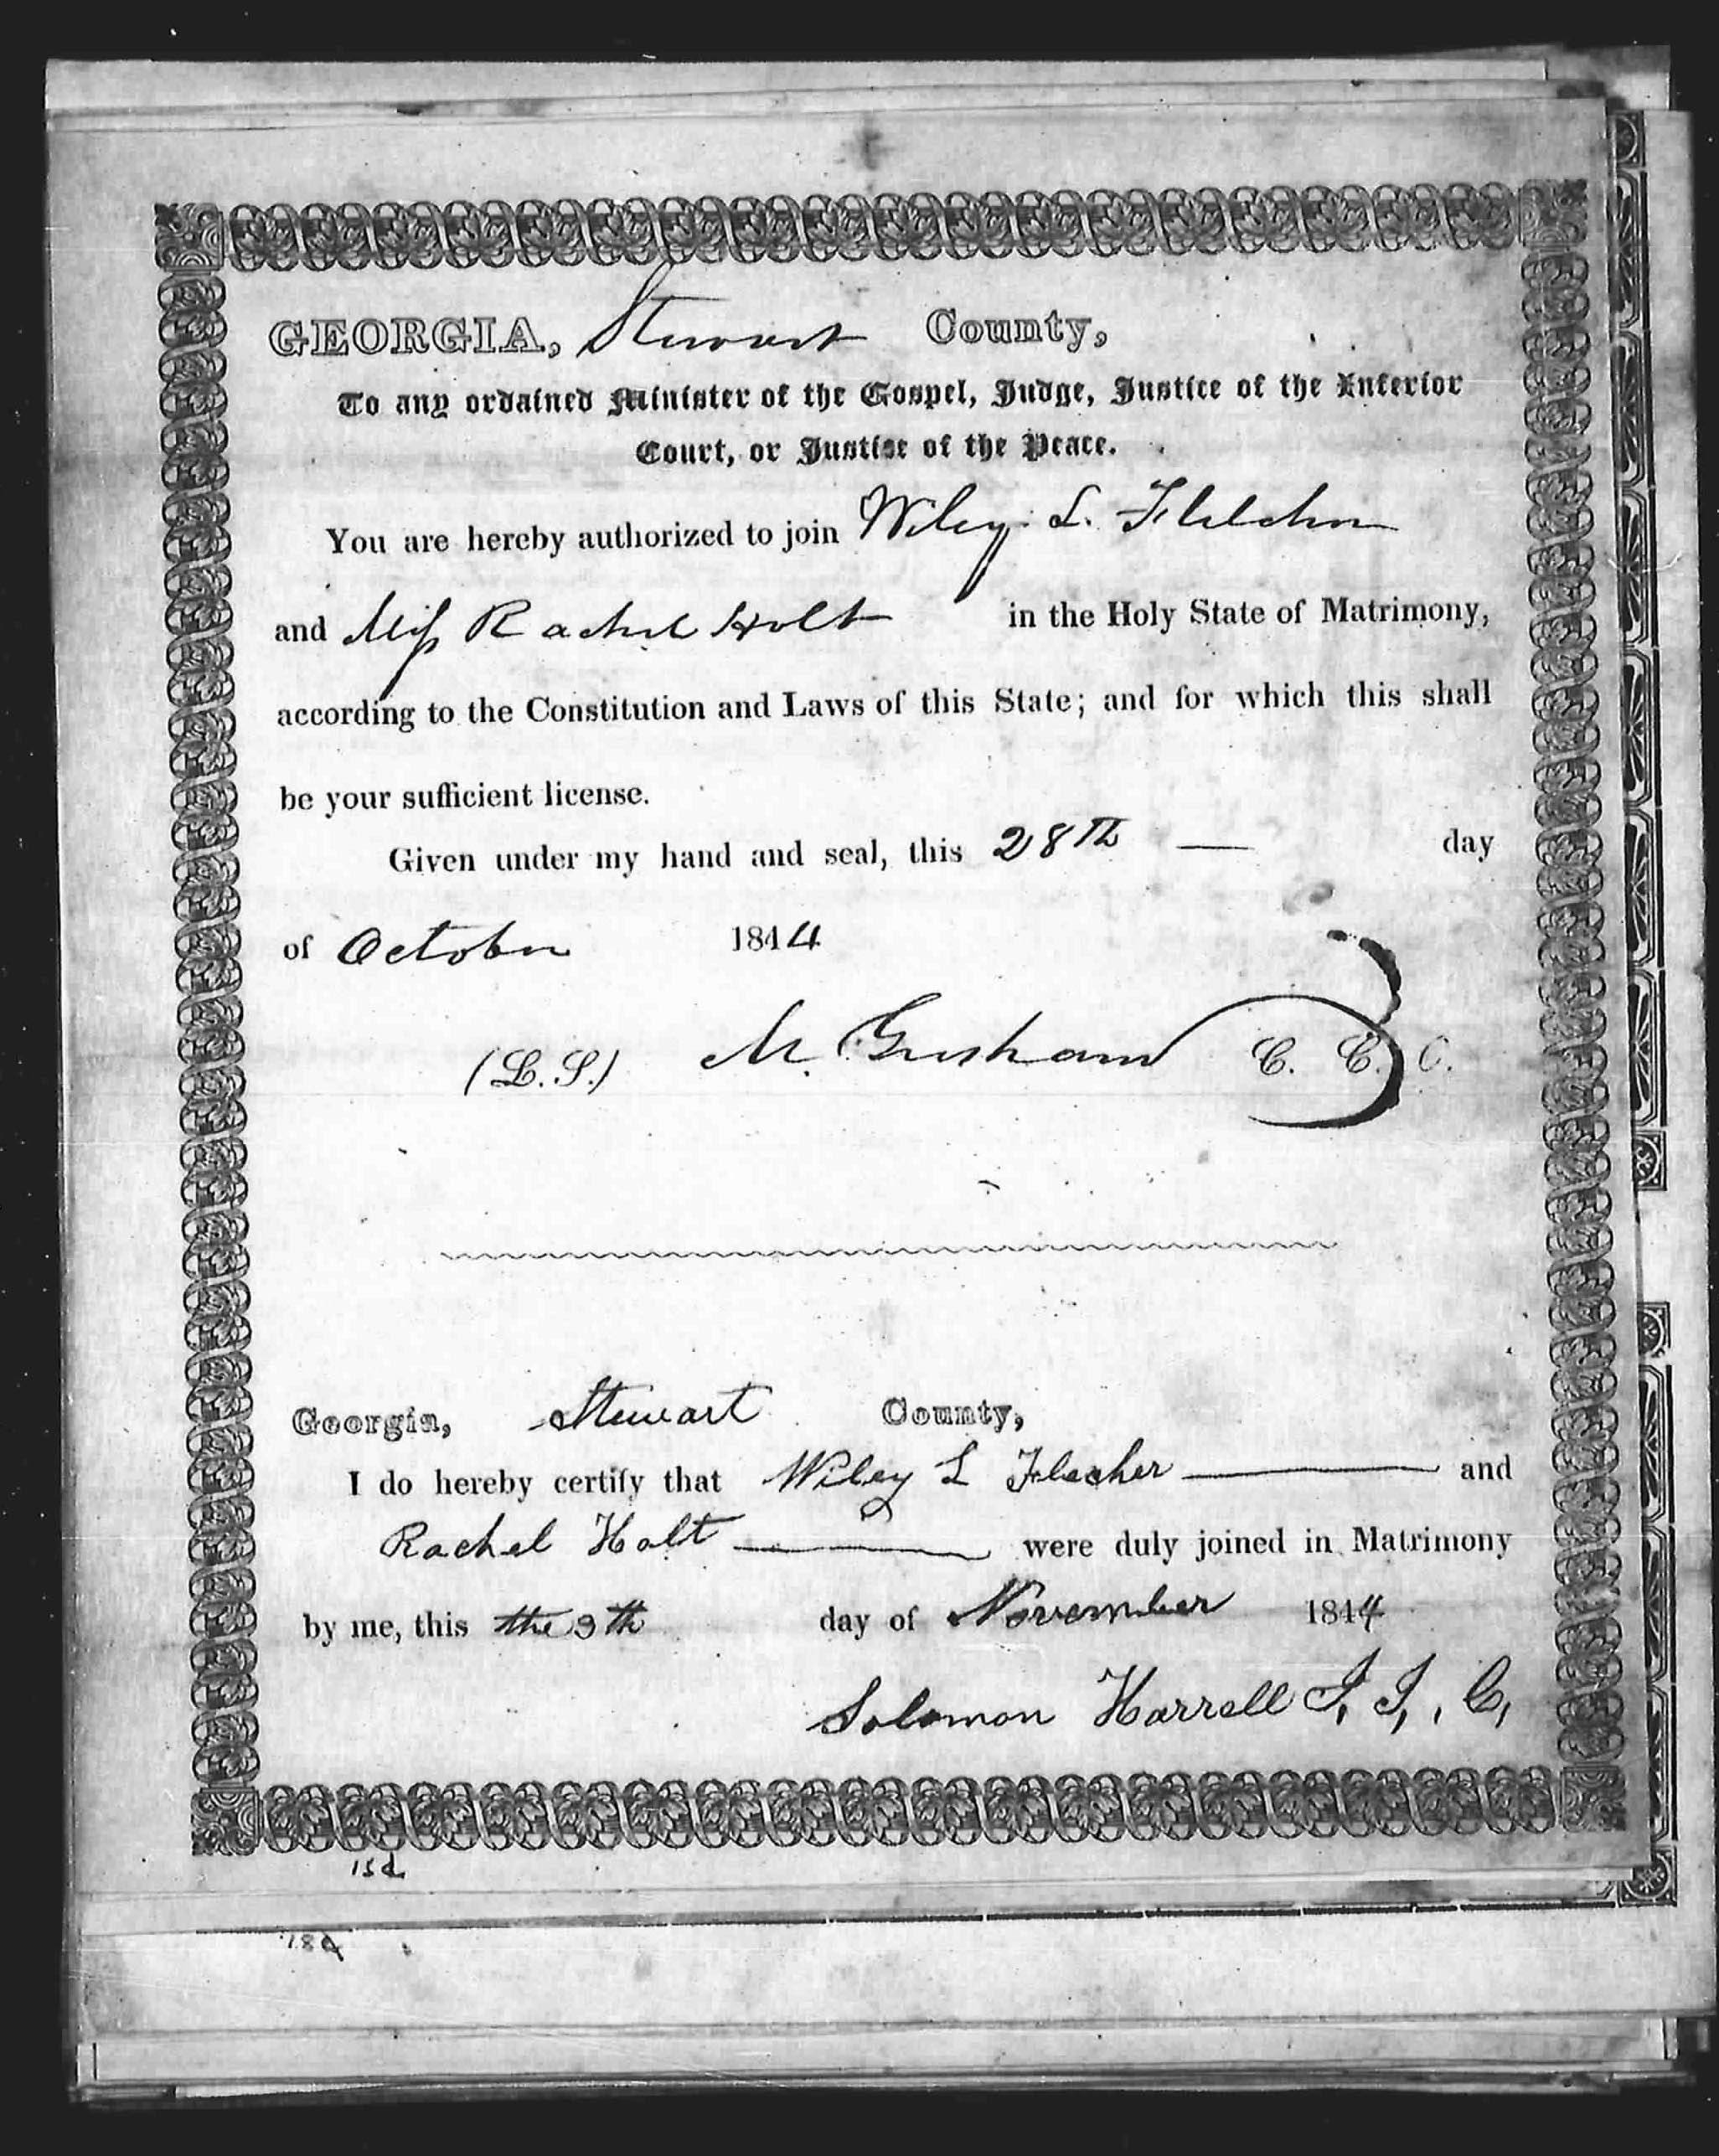 GEORGIA, Stewart County,
To any ordained Minister of the Gospel, Judge, Justice of the Inferior
Court, or Justice of the Peace.
You are hereby authorized to join Wiley L. Fletcher
and Miss Rachel Holt in the Holy State of Matrimony,
according to the Constitution and Laws of this State; and for which this shall
be your sufficient license.
Given under my hand and seal, this 28th — day
of October 1844
(L.S.) M. Gresham C. C. O.
Georgia, Stewart County,
I do hereby certify that Wiley L Flecher and
Rachel Holt were duly joined in Matrimony
by me, this the 3th day of November 1844
Solomon Harrell J, J, , C,